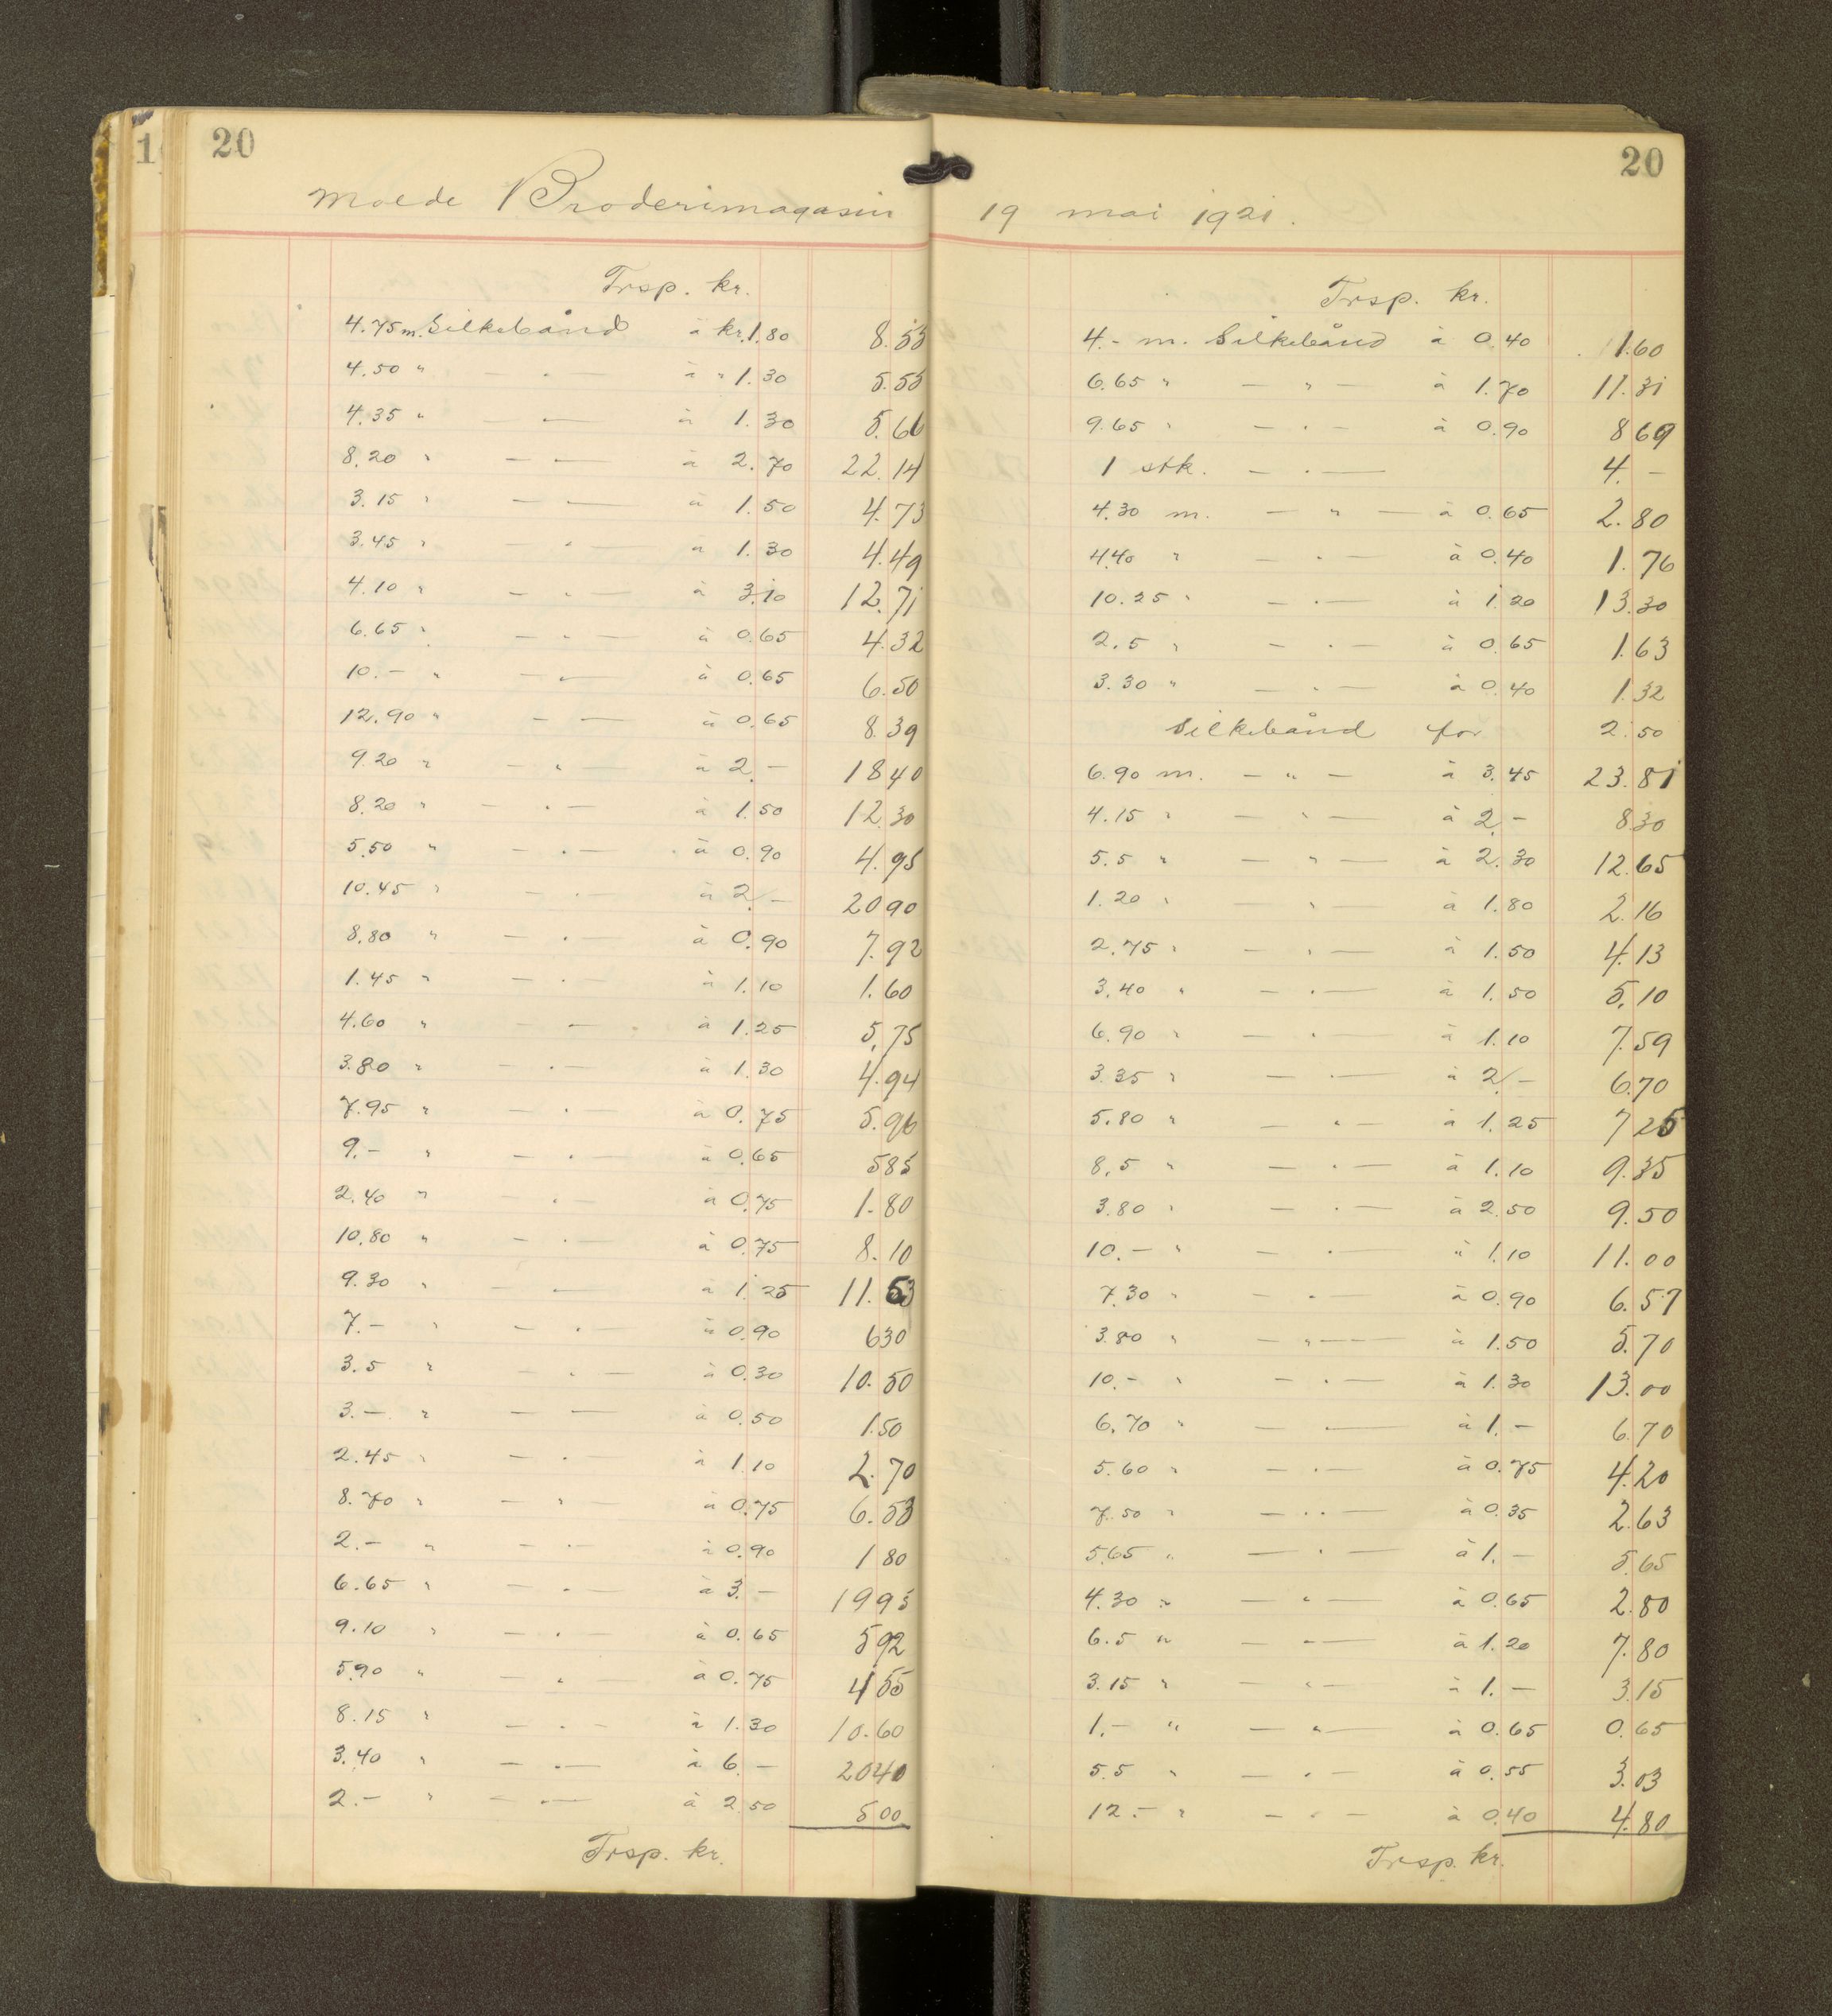 20
Molde Broderimagasin
Trsp. kr.
4.75 m. Silkebånd à kr. 1.80 8.55
4.50 " — " — à " 1.30 5.55
4.35 " — " — à 1.30 5.66
8.20 " — " — à 2.70 22.14
3.15 " — " — à 1.50 4.73
3.45 " — " — à 1.30 4.49
4.10 " — " — à 3.10 12.71
6.65 " — " — à 0.65 4.32
10.- " — " — à 0.65 6.50
12.90 " — " — à 0.65 8.39
9.20 " — " — à 2.- 18 40
8.20 " — " — à 1.50 12.30
5.50 " — " — à 0.90 4.95
10.45 " — " — à 2.- 20 90
8.80 " — " — à 0.90 7.92
1.45 " — " — à 1.10 1.60
4.60 " — " — à 1.25 5.75
3.80 " — " — à 1.30 4.94
7.95 " — " — à 0.75 5.96
9.- " — " — à 0.65 5 85
2.40 " — " — à 0.75 1.80
10.80 " — " — à 0.75 8.10
9.30 " — " — à 1.25 11.63
7.- " — " — à 0.90 6 30
3.5 " — " — à 0.30 10.50
3.- " — " — à 0.50 1.50
2.45 " — " — à 1.10 2.70
8.70 " — " — à 0.75 6.53
2.- " — " — à 0.90 1 80
6.65 " — " — à 3.- 19 95
9.10 " — " — à 0.65 5 92
5.90 " — " — à 0.75 4 55
8.15 " — " — à 1.30 10.60
3.40 " — " — à 6.- 20 40
2.- " — " — à 2.50 5 00
Trsp. kr.
20
19 mai 1921.
Trsp. kr.
4.- m. Silkebånd à 0.40 1.60
6.65 " — " — à 1.70 11.31
9.65 " — " — à 0.90 8 69
1 stk. — " — 4.-
4.30 m. — " — à 0.65 2.80
4.40 " — " — à 0.40 1.76
10.25 " — " — à 1.20 13.30
2.5 " — " — à 0.65 1.63
3.30 " — " — à 0.40 1.32
Silkebånd for 2.50
6.90 m. — " — à 3.45 23.81
4.15 " — " — à 2.- 8 30
5.5 " — " — à 2.30 12.65
1.20 " — " — à 1.80 2.16
2.75 " — " — à 1.50 4.13
3.40 " — " — à 1.50 5.10
6.90 " — " — à 1.10 7.59
3.35 " — " — à 2.- 6.70
5.80 " — " — à 1.25 7 25
8.5 " — " — à 1.10 9.35
3.80 " — " — à 2.50 9.50
10.- " — " — à 1.10 11.00
7.30 " — " — à 0.90 6.57
3.80 " — " — à 1.50 5.70
10.- " — " — à 1.30 13.00
6.70 " — " — à 1.- 6.70
5.60 " — " — à 0.75 4.20
7.50 " — " — à 0.35 2.63
5.65 " — " — à 1.- 5.65
4.30 " — " — à 0.65 2.80
6.5 " — " — à 1.20 7.80
3.15 " — " — à 1.- 3.15
1.- " — " — à 0.65 0.65
5.5 " — " — à 0.55 3.03
12.- " — " — à 0.40 4.80
Trsp. kr.